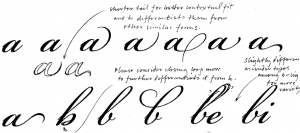 shorter tail for better contextual fit
and to differentiate them from
other similar forms.
a a a a a a a
a a
Please consider closing loop more
to further differentiate it from h.
Slightly different
a b b b be bi